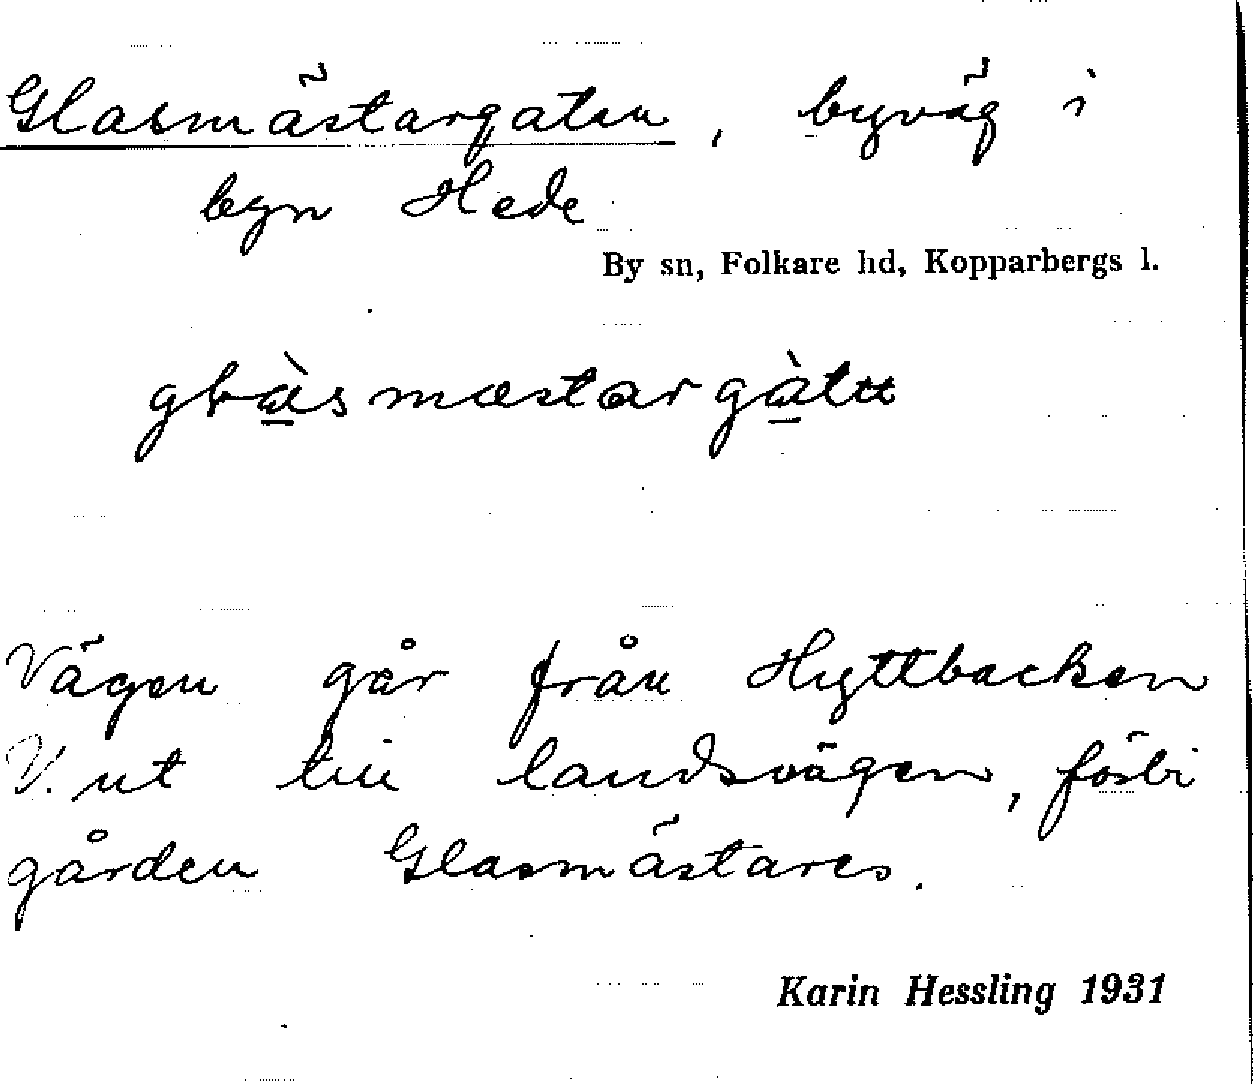 Glasmästargatan, byväg i
byn Hede
By sn, Folkare hd, Kopparbergs l.
Vägen går från Hyttbacken
V. ut till landsvägen, förbi
gården Glasmästares.
Karin Hessling 1931